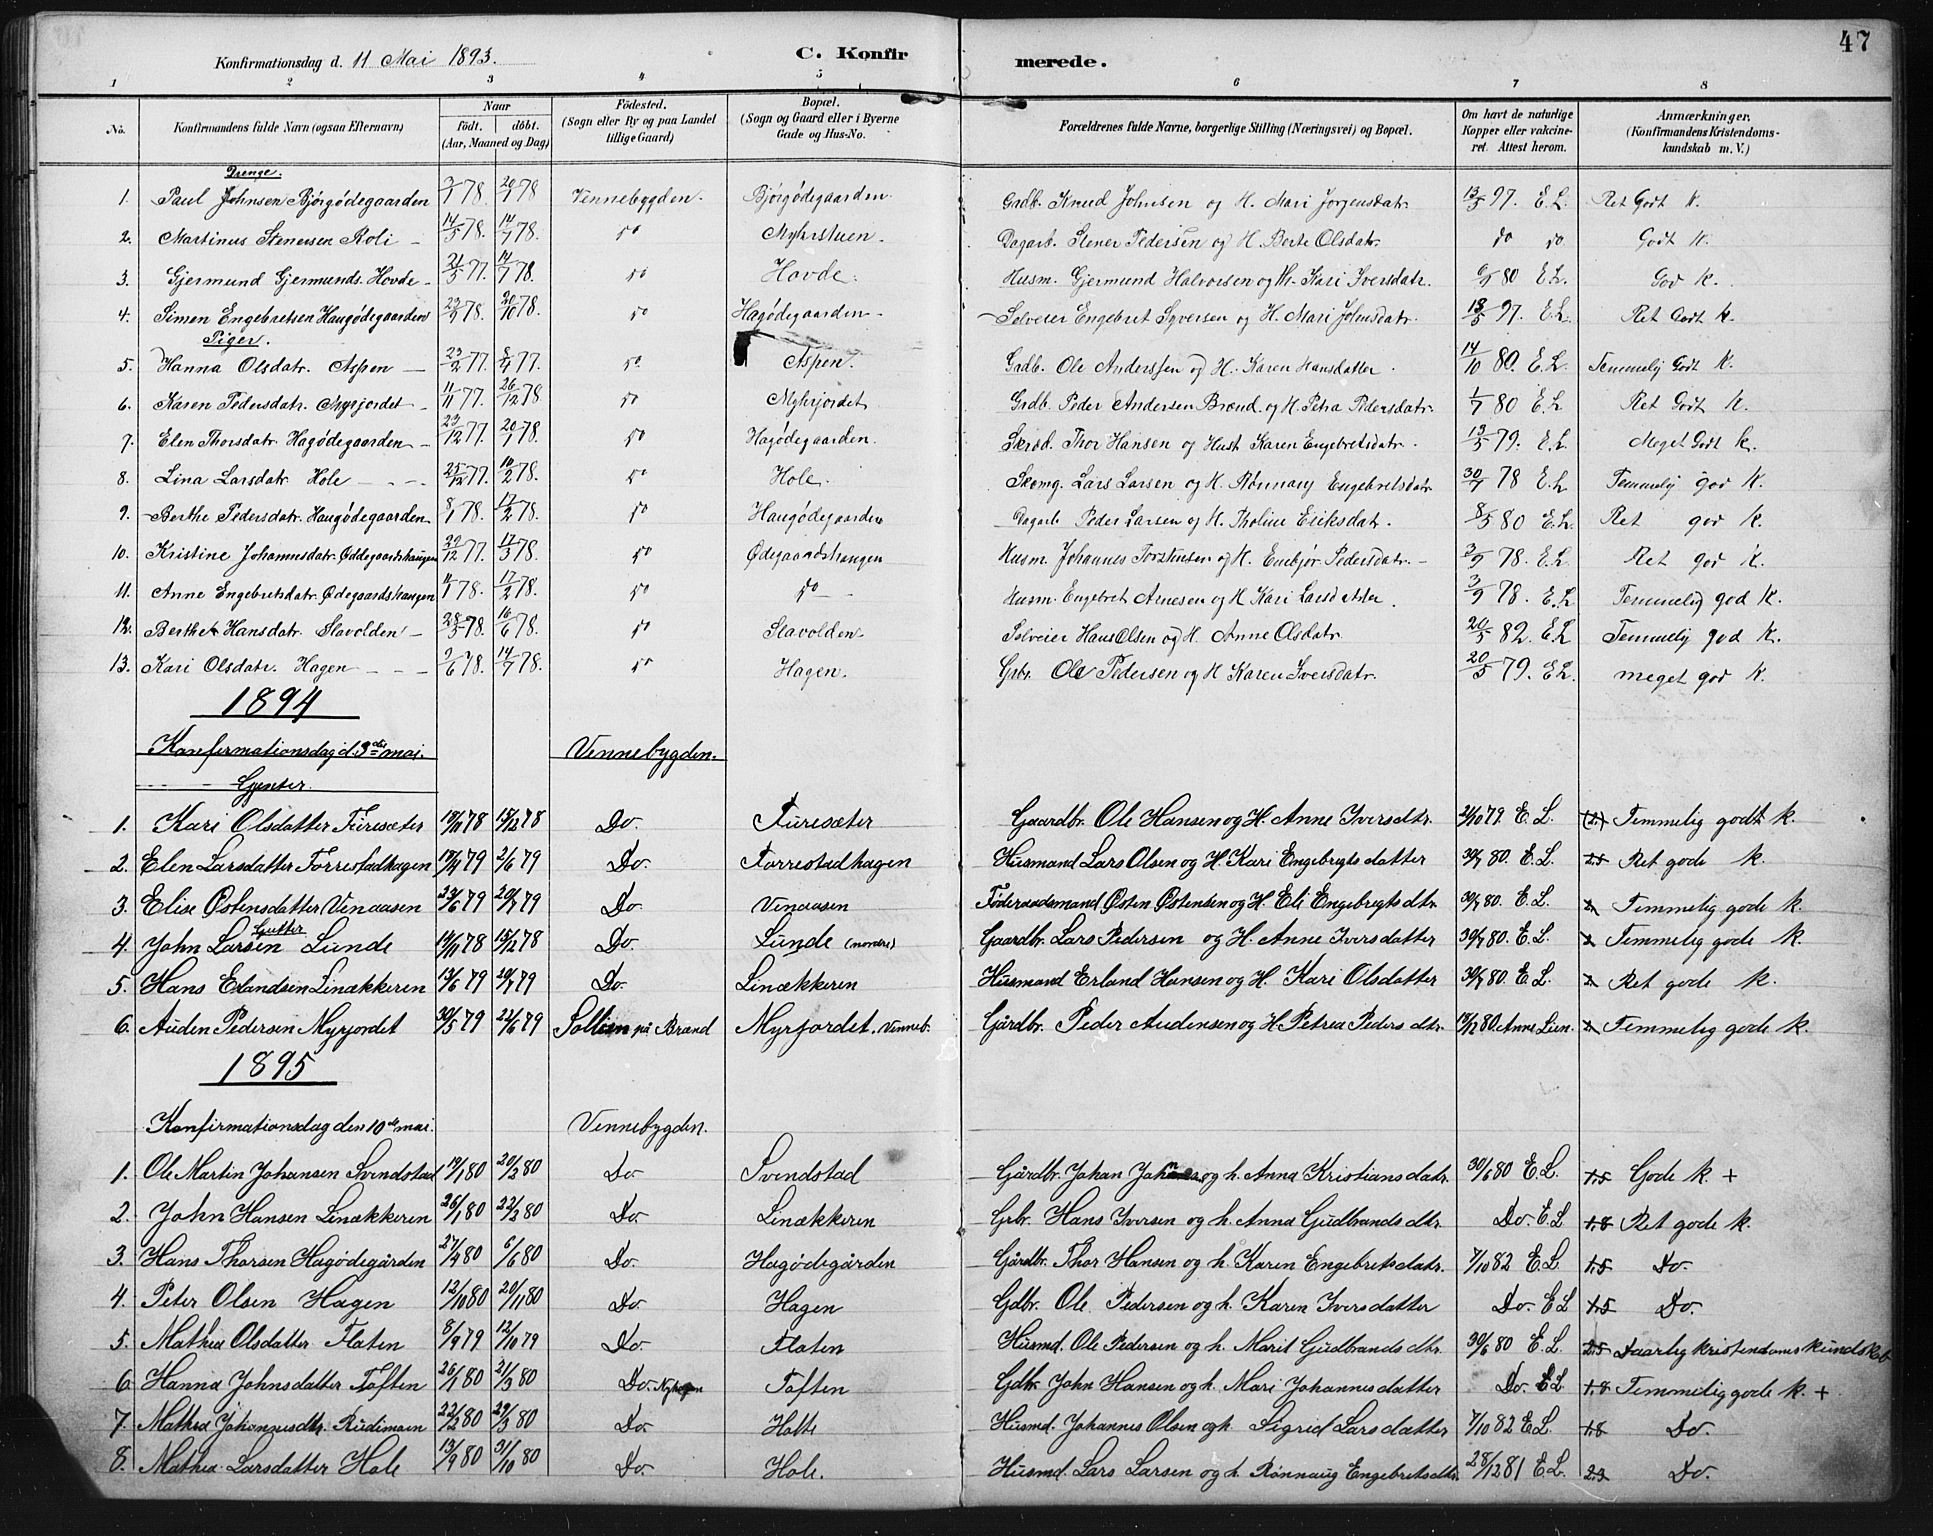 47
Konfirmationsdag d. 11 Mai 1893.
C. Konfirmerede.
1 2 3 4 5 6 7 8
No. Konfirmandens fulde Navn (ogsaa Efternavn) Naar født. døbt. (Aar, Maaned og Dag) Fødested. (Sogn eller By og paa Landet tillige Gaard) Bopæl. (Sogn og Gaard eller i Byerne Gade og Hus-No. Forældrenes fulde Navne, borgerlige Stilling (Næringsvei) og Bopæl. Om havt de naturlige Kopper eller vakcineret. Attest herom. Anmærkninger. (Konfirmandens Kristendomskundskab m. V.)
Drenge.
1. Paul Johnsen Bjørgødegaarden 3/1 78 20/1 78 Vennebygden. Bjørgødegaarden Grdb. Knud Johnsen og H. Mari Jorgensdatr. 13/5 97. E. L. Ret Godt K.
2. Martinus Stenersen Roli 14/5 78. 14/7 78. do Myhrstuen. Dagarb. Stener Pedersen og H. Berte Olsdatr. do do Godt K.
3. Gjermund Gjermunds. Hovde 21/5 77. 14/7 78. do Hovde. Husm. Gjermund Halvorsen og H. Kari Iversdatr. 80 E. L. God K.
4. Simen Engebretsen Haugødegaarden 23/9 78. 20/10 78. do Hagødegaarden Selveier Engebret Syversen og H. Mari Johnsdatr. 13/5 97. E. L. Ret Godt K.
Piger.
5. Hanna Olsdatr. Aspen 23/2 77. 8/4 77. do Aspen. Grdb. Ole Anderssen og H. Karen Hansdatter. 14/10 80. E. L. Temmelij Godt K.
6. Karen Pedersdatr. Myrjordet 11/11 77. 26/12 78 do Myhrjordet Grdb. Peder Andersen Brænd. og H. Petra Pedersdatr. 1/7 80 E. L. Ret Godt K.
7. Elen Thorsdatr. Hagødegaarden 23/12 77. 20/1 78. do Hagødegaarden. Skrsd. Thor Hansen og Hust. Karen Engebretsdatr. 13/5 79. E. L. Meget Godt K.
8. Lina Larsdatr. Hole 25/12 77. 10/2 78. do Hole. Skomg. Lars Larsen og H. Rønnaug Engebretsdatr. 30/7 78 E. L Temmelij god K.
9. Berthe Pedersdatr. Haugødegaarden 8/1 78. 17/2 78. do Haugødegaarden Dagarb. Peder Larsen og H. Tholine Eriksdatr. 8/5 80 E. L. Ret god K.
10. Kristine Johannesdatr. Øddegaardshaugen 29/12 77. 17/3 78. do Ødegaardshaugen Husm. Johannes Torstensen og H. Embjør Pedersdatr. 3/9 78. E. L. Ret god K.
11. Anne Engebretsdatr. Ødegaardshaugen 78. 17/2 78. do do Husm. Engebret Arnesen og H Kari Larsdatter. 3/9 78. E. L. Temmelig god K.
12. Berthe Hansdatr. Slavolden 28/5 78. 16/6 78. do Slavolden Selveier Hans Olsen og H. Anne Olsdatr. 20/5 82. E. L Temmelij god K.
13. Kari Olsdatr. Hagen 2/6 78. 14/7 78. do Hagen. Grbr. Ole Pedersen og H Karen Iversdatr. 20/5 79. E L. meget god K.
1894
Konfirmationsdag d. 3die mai. Vennebygden.
Gjenter.
1. Kari Olsdatter Fùresæter 18/11 78 15/12 78 Do. Fùresæter Gaardbr. Ole Hansen og H. Anne Iversdtr. 21/10 79. E. L. (2.) Temmelig godt k.
2. Elen Larsdatter Torrestadhagen 19/4 79 2/6 79 Do. Torrestadhagen Hùsmand Lars Olsen og H. Kari Engebrygts datter 30/7 80. E. L. 2.5 Ret gode k.
3. Elise Østensdatter Venaasen 23/6 79 20/7 79 Do. Venaasen Føderaadsmand Østen Østensen og H. Eli Engebrygts dtr. 30/7 80. E. L. 2. Temmelig gode k.
Gutter
4. John Larsen Lùnde 14/11 78 15/12 78 Do. Lùnde (nordre) Gaardbr. Lars Pedersen og H. Anne Iversdatter 30/7 80. E. L. 2 Temmelig gode k.
5. Hans Erlandsen Linækkeren 13/6 79 20/7 79 Do. Linækkeren Hùsmand Erland Hansen og H. Kari Olsdatter 30/7 80. E. L. 2. Ret gode k.
6. Aùden Pedersen Myrjordet 30/5 79 22/6 79 Sollien på Brænd Myrjordet. Venneb. Gårdbr. Peder Aùdensen og H Petrea Peders dtr. 18/12 80. Anne Lien. 2. Temmelig gode k.
1895
Konfirmationsdag den 10de mai. Vennebygden.
1. Ole Martin Johansen Svindstad 19/1 80 20/2 80 Do. Svendstad Gårdbr. Johan Johansen og h. Anna Kristians datr. 30/6 80 E. L. 1.5 Gode k +
2. John Hansen Linækkeren 26/1 80 22/2 80 Do. Linækkeren Grbr. Hans Iversen og h. Anna Gùdbrands dtr. Do. E L 1.8 Ret gode k.
3. Hans Thorsen Hagødegården 27/4 80 6/6 80 Do. Hagødegården Gårdbr. Thor Hansen og h. Karen Engebretsdatr. 7/10 82 E L. 1.5 Do.
4. Peter Olsen Hagen 12/10 80 20/11 80 Do. Hagen Gdbr. Ole Pedersen og h. Karen Iversdatter Do. E L 1.5 Do.
5. Mathea Olsdatter Flaten 8/9 79 12/10 79 Do. Flaten Hùsmd. Ole Pedersen og h. Marit Gùdbrands dtr. 30/6 80 E. L. 2.5 Daarlig kristendomskùndskab
6. Hanna Johnsdatter Toften 26/1 80 21/3 80 Do. Toften Gdbr. John Hansen og h. Mari Johannesdatter Do. E L 1.8 Temmelig gode k. +
7. Mathea Johannesdtr. Rùdimoen 22/2 80 29/3 80 Do. Holte Hùsmd. Johannes Olsen og h. Sigrid Larsdatter 7/10 82 E L. 1.8 Do.
8. Mathea Larsdatter Hole 13/9 80 31/10 80 Do. Hole. Hùsmd. Lars Larsen og h. Rønnaug Engebretsdtr. 28/12 81 E L. 2.3 Do.